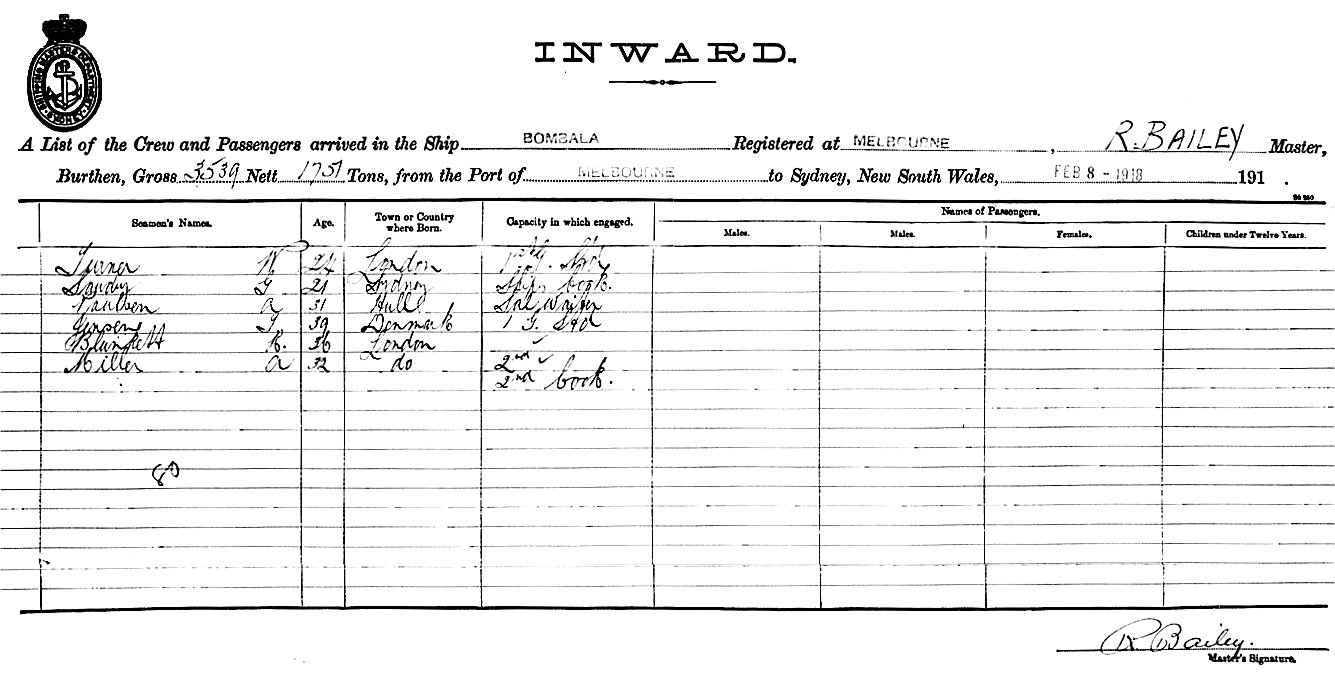 INWARD.
SHIPPING MASTERS DEPARTMENT SYDNEY
A List of the Crew and Passengers arrived in the Ship BOMBALA Registered at MELBOURNE, R. BAILEY Master,
Burthen, Gross 3539 Nett 1751 Tons, from the Port of MELBOURNE to Sydney, New South Wales, FEB 8 - 1918 191 .
Names of Passengers.
Seamen's Names. Age. Town or Country where Born. Capacity in which engaged. Males. Males. Females. Children under Twelve Years.
Turner W 24 London
Sandy G 21 Sydney Ship's Cook.
Paulsen A 31 Hull Sal Waiter
Jensen J. 39 Denmark 1 G. Std
Blunkett R. 36 London
Miller A 32 do 2nd
2nd Cook.
80
R. Bailey.
Master's Signature.